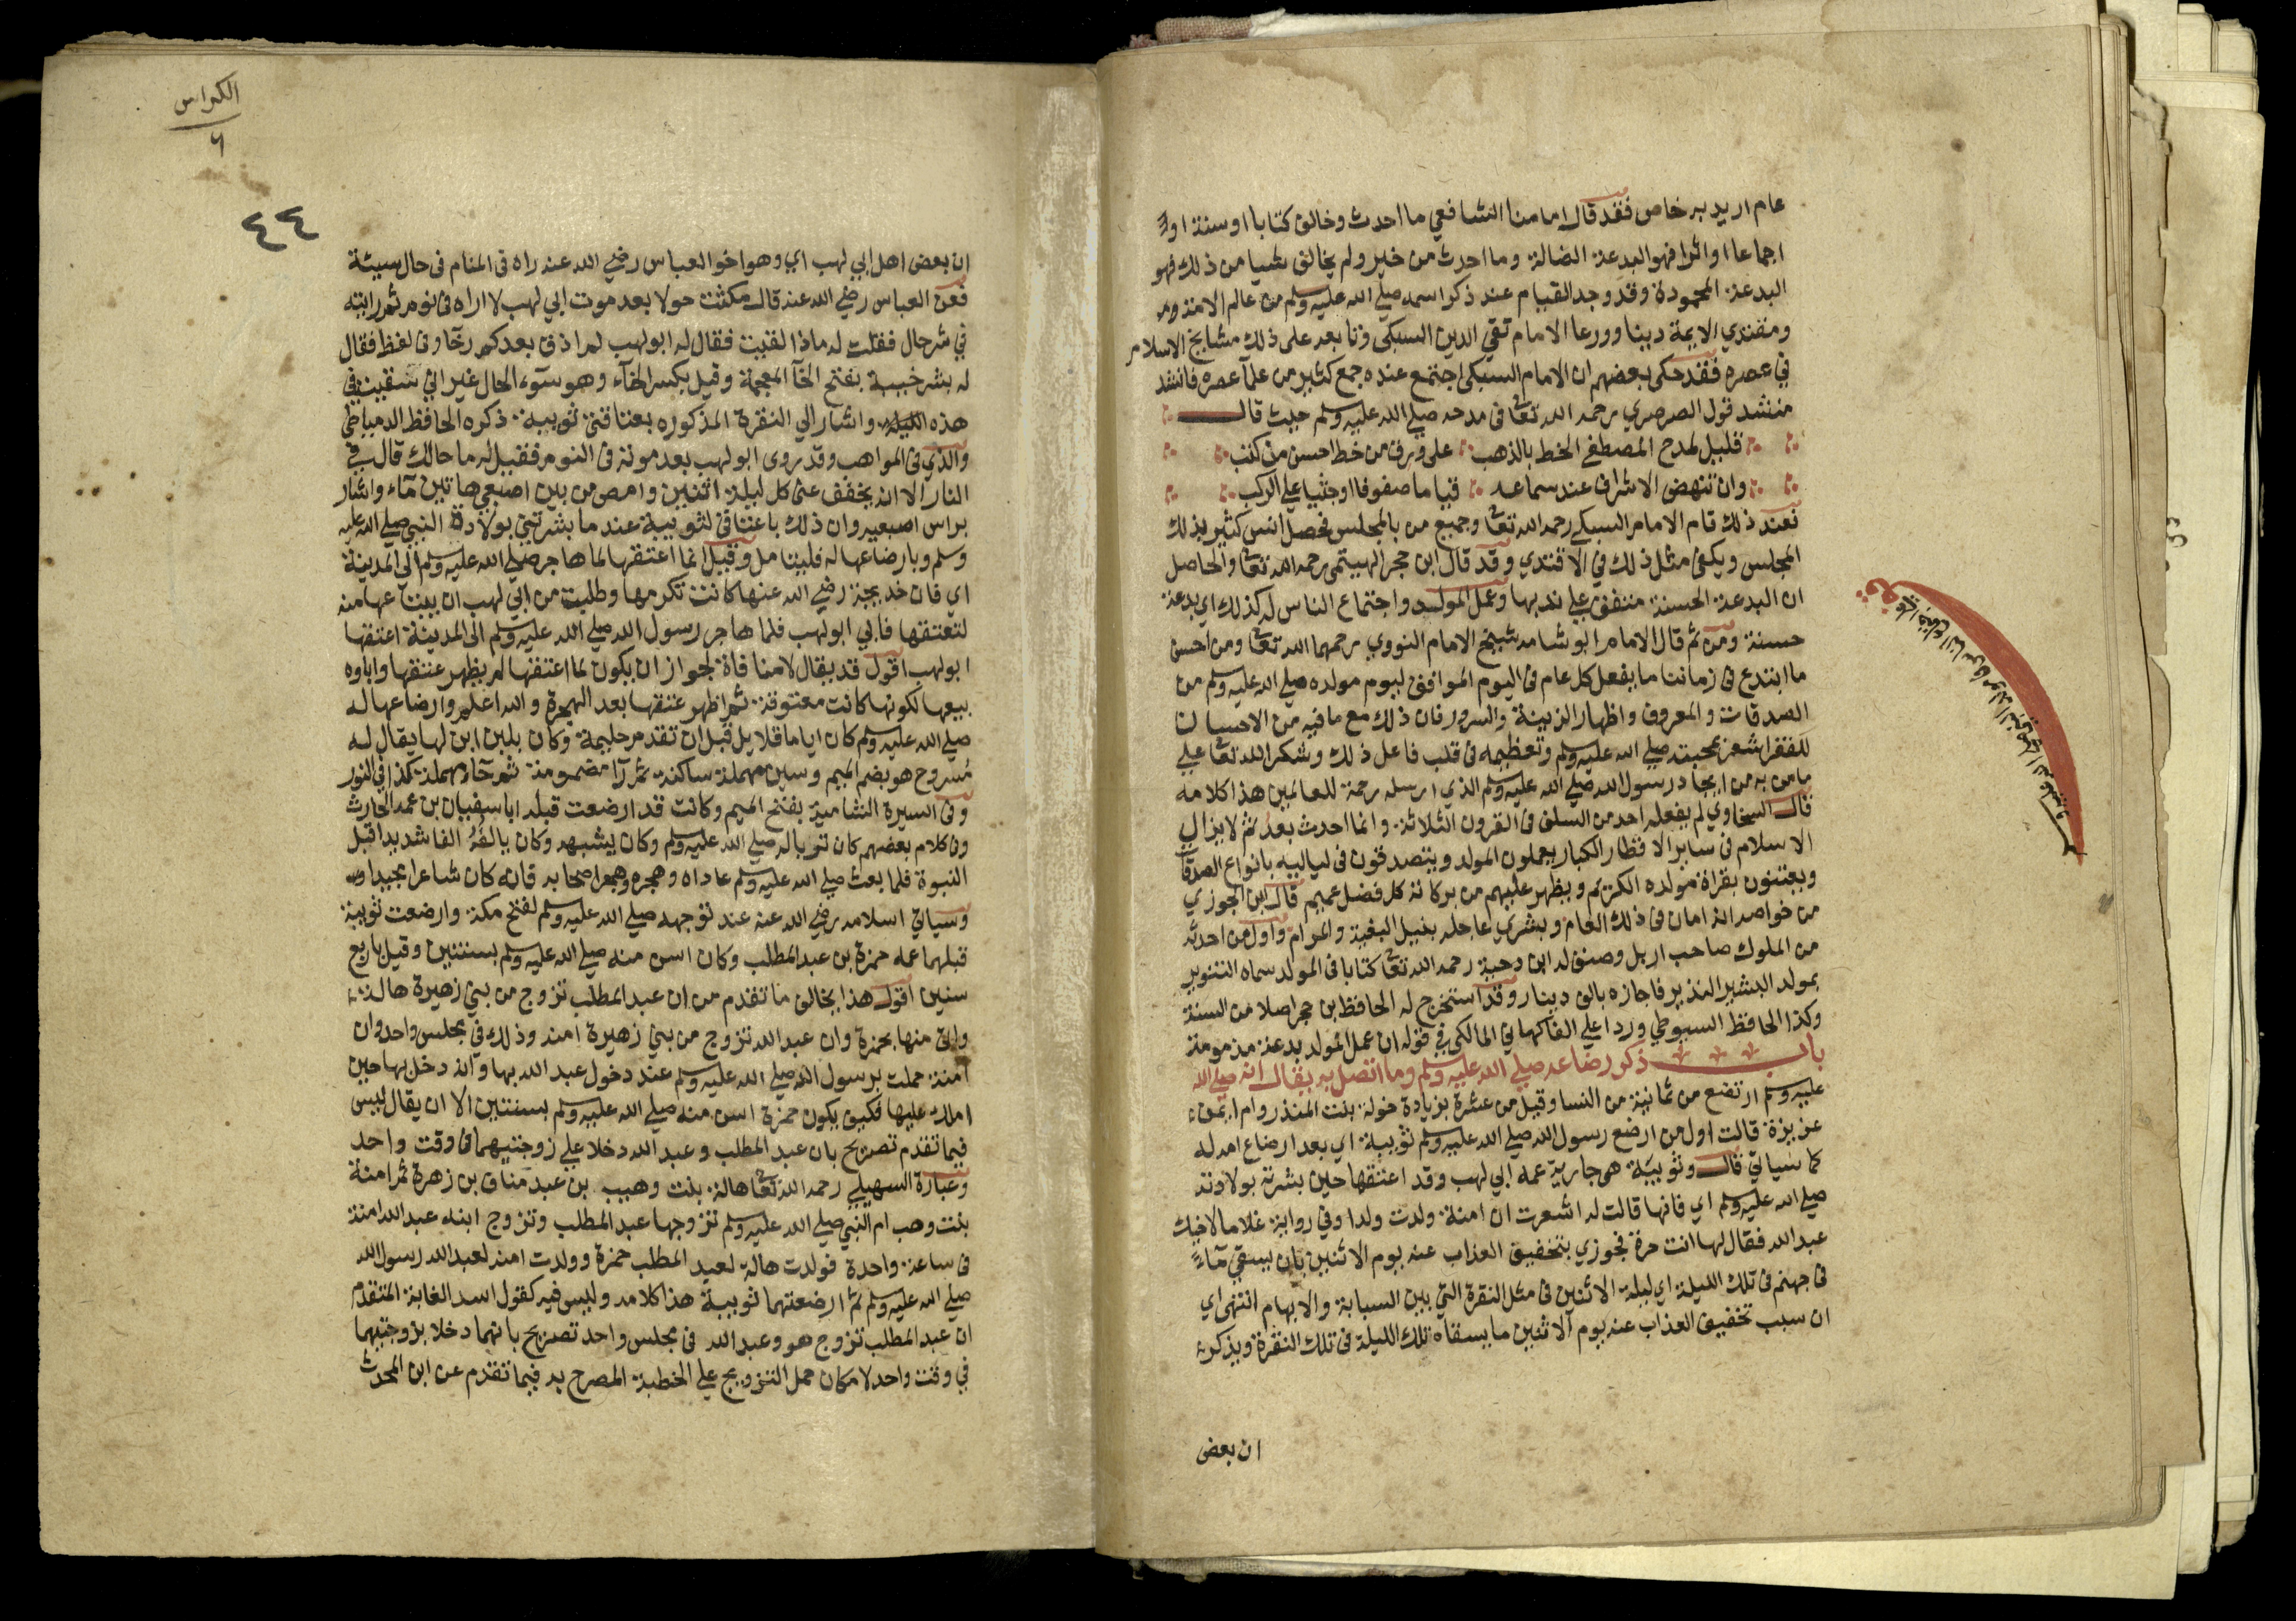 عام اريد به خاص فقد قال امامنا الشافعي ما احدث وخالف كتابا او سنة او
اجماعا او اثرا فهو البدعة الضالة وما احدث من خير ولم يخالف شيا من ذلك فهو
البدعة المحمودة وقد وجد القيام عند ذكر اسمه صلي الله عليه وسلم من عالم الامة ومن
ومقتدي الايمة دينا وورعا الامام تقي الدين السبكى وتابعه على ذلك مشايخ الاسلام
في عصره فقد حكى بعضهم ان الامام السبكى اجتمع عنده جمع كثير من علمآ عصره فانشد
منشد قول الصرصري رحمه الله تعا فى مدحه صلي الله عليه وسلم حيث قال
قليل لمدح المصطفى الخط بالذهب على ورق من خط احسن من كتب
وان تنهض الاشراف عند سماعه قياما صفوفا او جثيا علي الركب
فعند ذلك قام الامام السبكي رحمه الله تعا وجميع من بالمجلس فحصل انس كثير بذلك
المجلس ويكفى مثل ذلك في الاقتدي وقد قال ابن حجر الهيتمى رحمه الله تعا والحاصل
ان البدعة الحسنة متفق علي ندبها وعمل المولد واجتماع الناس له كذلك اي بدعة
حسنة ومن ثم قال الامام ابو شامه شيخ الامام النووي رحمهما الله تعا ومن احسن
ما ابتدع فى زماننا ما يفعل كل عام فى اليوم الموافق ليوم مولده صلي الله عليه وسلم من
الصدقات والمعروف واظهار الزينة والسرور فان ذلك مع ما فيه من الاحسان
للفقرا مشعر بمحبته صلي الله عليه وسلم وتعظيمه فى قلب فاعل ذلك وشكر الله تعا علي
ما من به من ايجاد رسول الله صلي الله عليه وسلم الذي ارسله رحمة للعالمين هذا كلامه
قال السخاوي لم يفعله احد من السلف فى القرون الثلاثة وانما احدث بعد ثم لا يزال
الاسلام فى ساير الاقطار الكبار يعملون المولد ويتصدقون فى لياليه بانواع الصدقات
ويعتنون بقراة مولده الكريم ويظهر عليهم من بركاته كل فضل عميم قال ابن الجوزي
من خواصه انه امان فى ذلك العام وبشري عاجلة بنيل البغية والمرام واول من احدثه
من الملوك صاحب اربل وصنف له ابن دحية رحمه الله تعا كتابا فى المولد سماه التنوير
بمولد البشير النذير فاجازه بالف دينار وقد استخرج له الحافظ بن حجر اصلا من السنة
وكذا الحافظ السيوطي وردا علي الفاكهاني المالكى في قوله ان عمل المولد بدعة مذمومة
باب ذكر رضاعه صلي الله عليه وسلم وما اتصل به يقال انه صلي الله
عليه وسلم ارتضع من ثمانية من النسا وقيل من عشرة بزيادة خولة بنت المنذر وام ايمن
عزيزة قالت اول من ارضع رسول الله صلي الله عليه وسلم ثويبة اي بعد ارضاع امه له
كما سياتي قال وثويبة هى جارية عمه ابي لهب وقد اعتقها حين بشرته بولادته
صلي الله عليه وسلم اي فانها قالت له اشعرت ان امنة ولدت ولدا وفي رواية غلاما لاخيك
عبد الله فقال لها انت حرة فجوزي بتخفيف العذاب عنه يوم الاثنين بان يسقي مآء
فى جهنم فى تلك الليلة اي ليلة الاثنين فى مثل النقرة التي بين السبابة والابهام انتهى اي
ان سبب تخفيف العذاب عنه يوم الاثنين ما يسقاه تلك الليلة فى تلك النقرة ويذكر
ان بعض
الكراس
٦
٤٤
ان بعض اهل ابي لهب اي وهو اخو العباس رضي الله عنه راه فى المنام فى حال سيئة
فعن العباس رضي الله عنه قال مكثت حولا بعد موت ابي لهب لا اراه فى نوم ثم رايته
في شر حال فقلت له ماذا لقيت فقال له ابو لهب لم اذق بعدكم رخآ وفى لفظ فقال
له بشر خيبة بفتح الخآ المعجمة وقيل بكسر الخآء وهو سوء الحال غير اني سقيت في
هذه الليلة واشار الي النقرة المذكوره بعتاقتى ثويبة ذكره الحافظ الدمياطى
والذي فى المواهب وقد روى ابو لهب بعد موته فى النوم فقيل له ما حالك قال في
النار الا انه يخفف عنى كل ليلة اثنين وامص من بين اصبعي هاتين مآء واشار
براس اصبعيه وان ذلك باعتاقي لثويبة عند ما بشرتني بولادة النبي صلي الله عليه
وسلم وبارضاعها له فليتامل وقيل انما اعتقها لما هاجر صلي الله عليه وسلم الى المدينة
اي فان خديجة رضي الله عنها كانت تكرمها وطلبت من ابي لهب ان يبتاعها منه
لتعتقها فابي ابو لهب فلما هاجر رسول الله صلي الله عليه وسلم الى المدينة اعتقها
ابو لهب اقول قد يقال لا منافاة لجواز ان يكون لما اعتقها لم يظهر عتقها واباوه
بيعها لكونها كانت معتوقة ثم اظهر عتقها بعد الهجرة والله اعلم وارضاعها له
صلي الله عليه وسلم كان اياما قلايل قبل ان تقدم حليمة وكان بلبن ابن لها يقال له
مسروح هو بضم الميم وسين مهملة ساكنة ثم رآ مضمومة ثم حآء مهملة كذا فى النور
وفى السيرة الشامية بفتح الميم وكانت قد ارضعت قبله ابا سفيان بن عمه الحارث
وفى كلام بعضهم كان تربا له صلي الله عليه وسلم وكان يشبهه وكان يالفه الفا شديدا قبل
النبوة فلما بعث صلي الله عليه وسلم عاداه وهجره وهجا اصحابه فانه كان شاعرا مجيدا
وسياتي اسلامه رضي الله عنه عند توجهه صلي الله عليه وسلم لفتح مكة وارضعت ثويبة
قبلهما عمه حمزة بن عبد المطلب وكان اسن منه صلي الله عليه وسلم بسنتين وقيل باربع
سنين اقول هذا يخالف ما تقدم من ان عبد المطلب تزوج من بني زهيرة هالة
واتى منها بحمزة وان عبد الله تزوج من بني زهيرة امنة وذلك في مجلس واحد وان
امنة حملت برسول الله صلي الله عليه وسلم عند دخول عبد الله بها وانه دخل بها حين
املك عليها فكيف يكون حمزة اسن منه صلي الله عليه وسلم بسنتين الا ان يقال ليس
فيما تقدم تصريح بان عبد المطلب وعبد الله دخلا علي زوجتيهما فى وقت واحد
وعبارة السهيلي رحمه الله تعا هالة بنت وهيب بن عبد مناف بن زهرة ثم امنة
بنت وهب ام النبي صلي الله عليه وسلم تزوجها عبد المطلب وتزوج ابنه عبد الله امنة
فى ساعة واحدة فولدت هالة لعبد المطلب حمزة وولدت امنة لعبد الله رسول الله
صلي الله عليه وسلم ثم ارضعتهما ثويبة هذا كلامه وليس فيه كقول اسد الغابة المتقدم
ان عبد المطلب تزوج هو وعبد الله فى مجلس واحد تصريح بانهما دخلا بزوجتيهما
في وقت واحد لامكان حمل التزويج علي الخطبة المصرح به فيما تقدم عن ابن المحدث